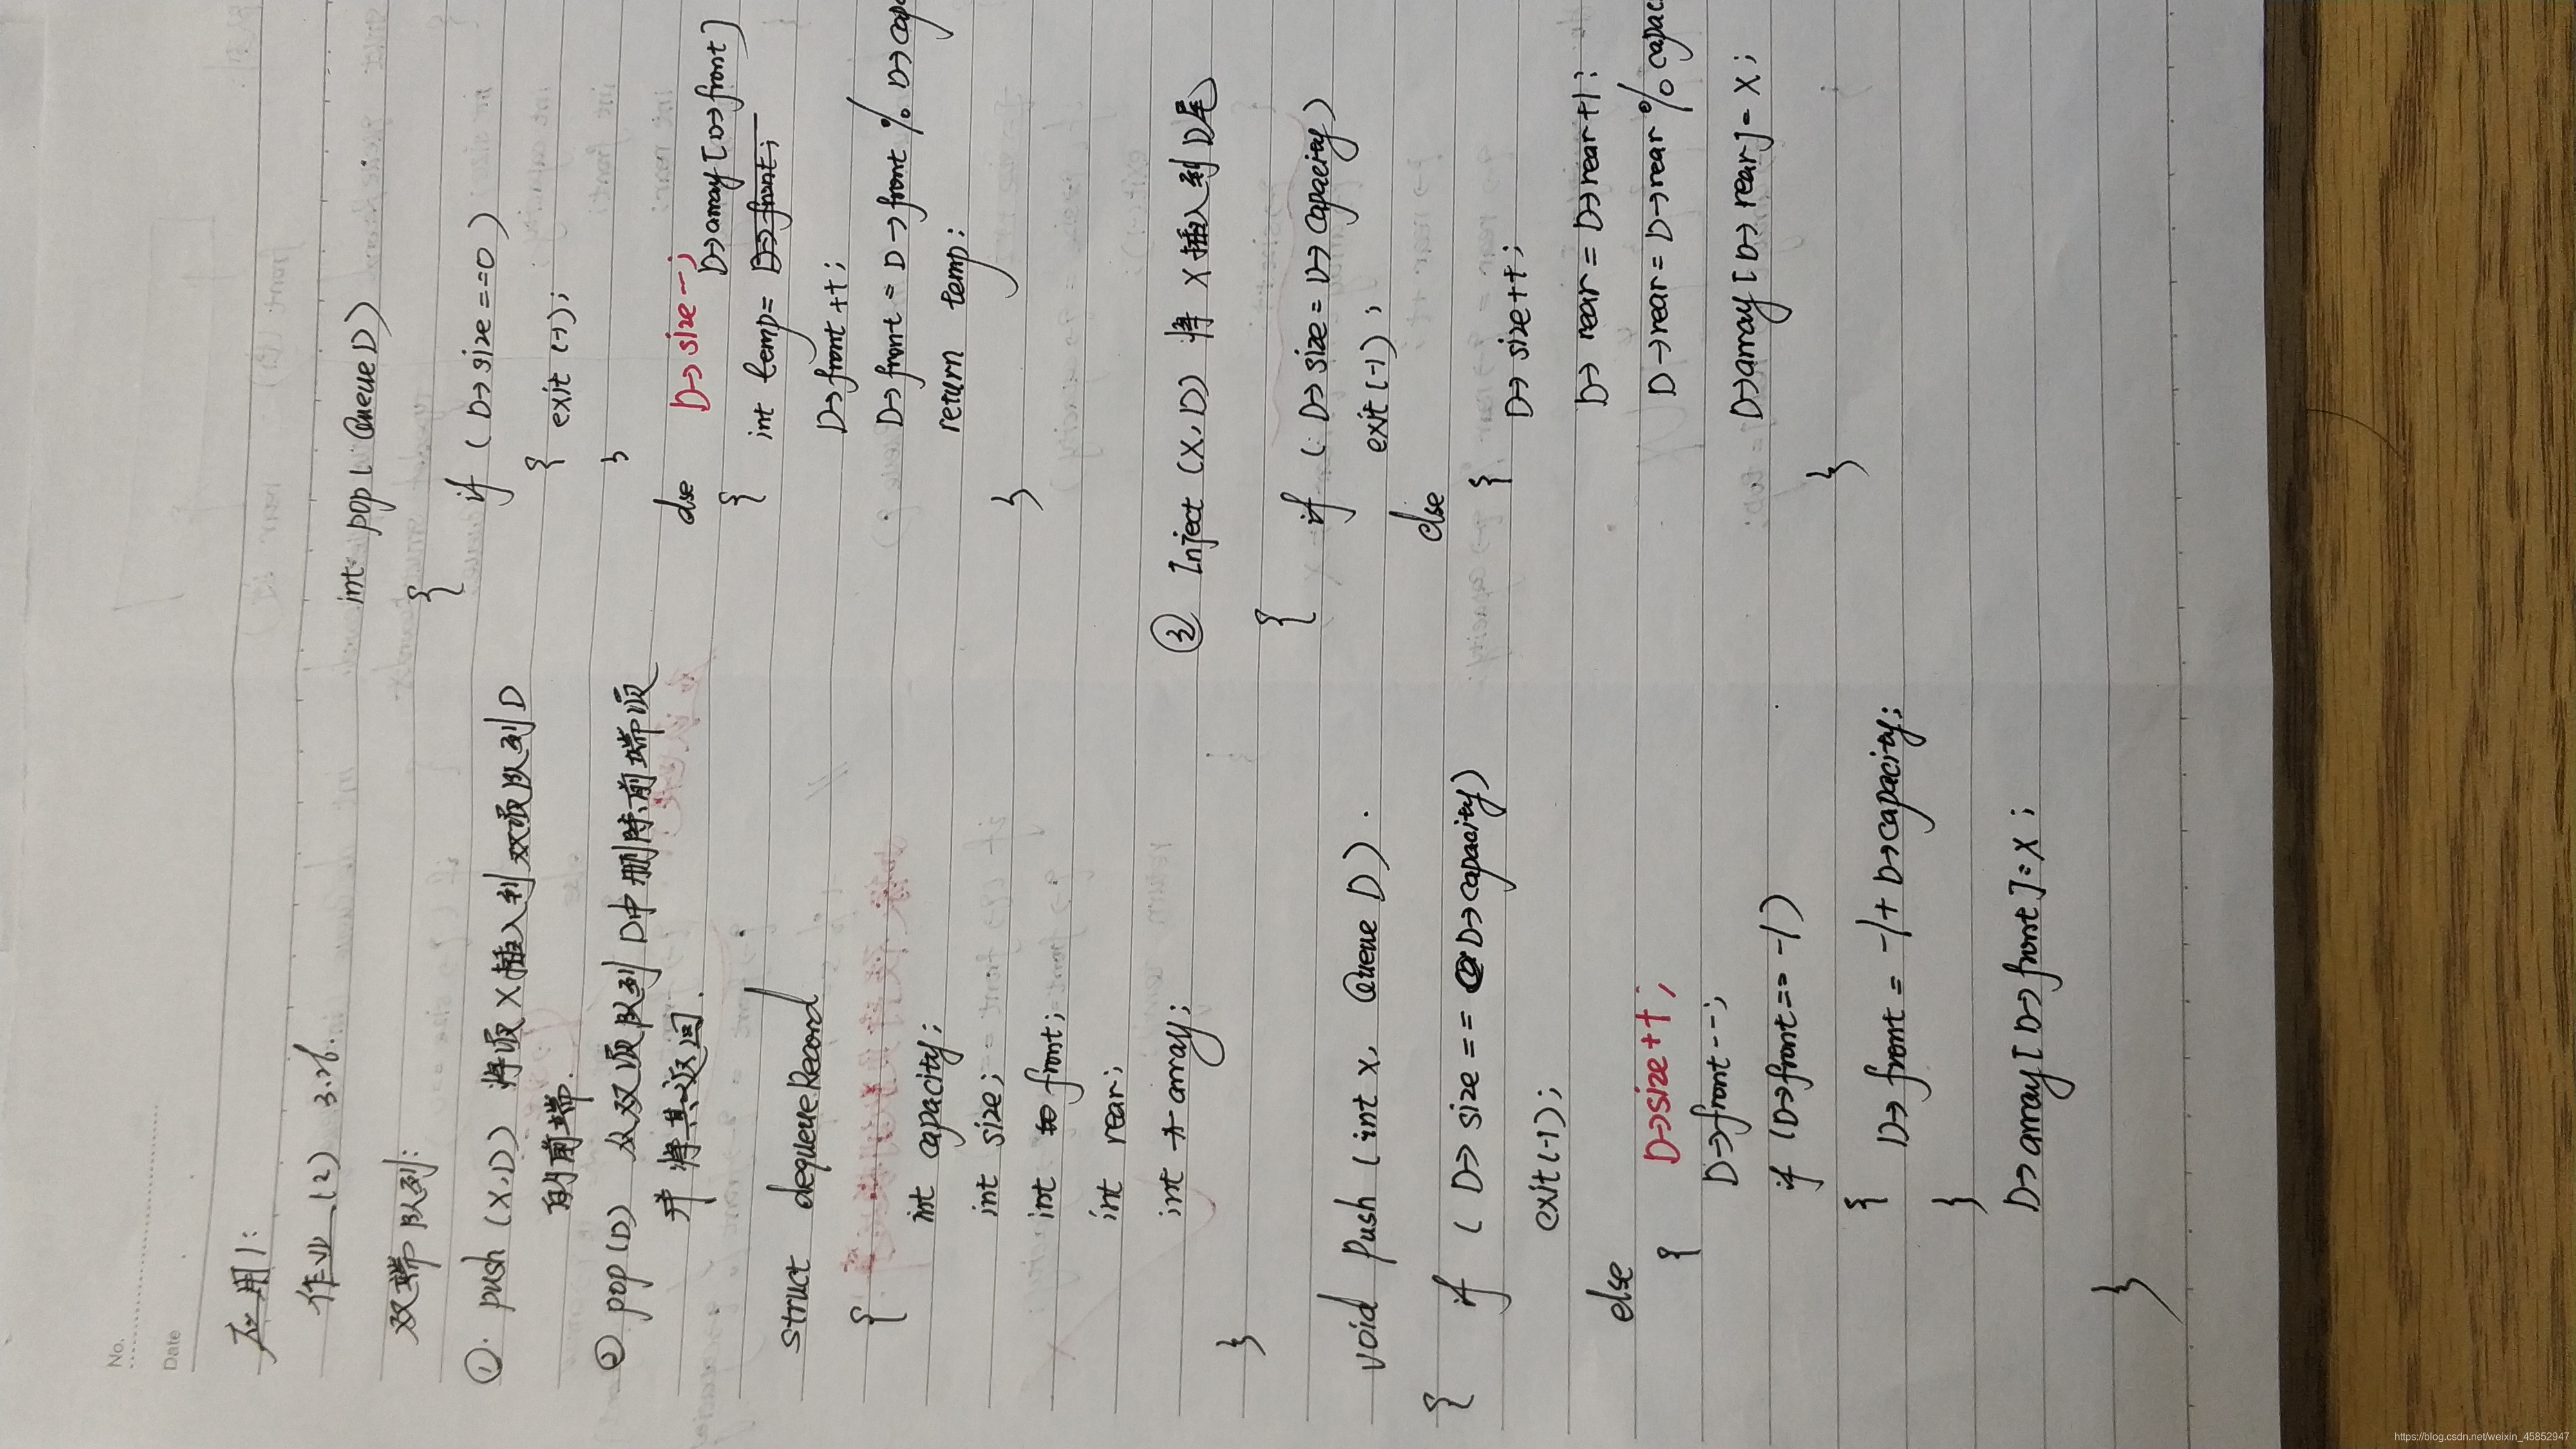 No.
Date
应用1:
作业 (2) 3.26.
双端队列:
①. push (X,D) 将项X插入到双项队列D
的前端.
② pop(D) 从双项队列D中删除前端项
并将其返回.
struct dequeueRecord
{
int capacity;
int size;
int front;
int rear;
int * array;
}
void push (int x, Queue D).
{ if (D→size == D→capacity)
exit(-1);
else
{ D→size++;
D→front--;
if (D→front == -1)
{ D→front = -1 + D→capacity;
}
D→array[D→front] = X;
}
int pop(QueueD)
{
if (D→size==0)
{ exit(-1);
}
else D→size--;
{ D→array[D→front]
int temp= D→front;
D→front++;
D→front = D→front % D→capa
return temp;
}
③ Inject (X,D) 将X插入到D尾
{
if (D→size = D→capacity)
exit(-1);
else
{ D→size++;
D→rear = D→rear+1;
D→rear = D→rear % capac
D→array[D→rear] = X;
}
https://blog.csdn.net/weixin_45852947